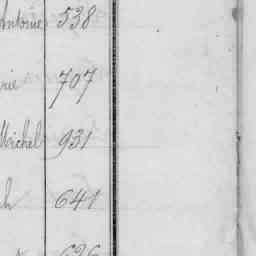 Antoine 538
rie 707
Michel 931
h 641
626